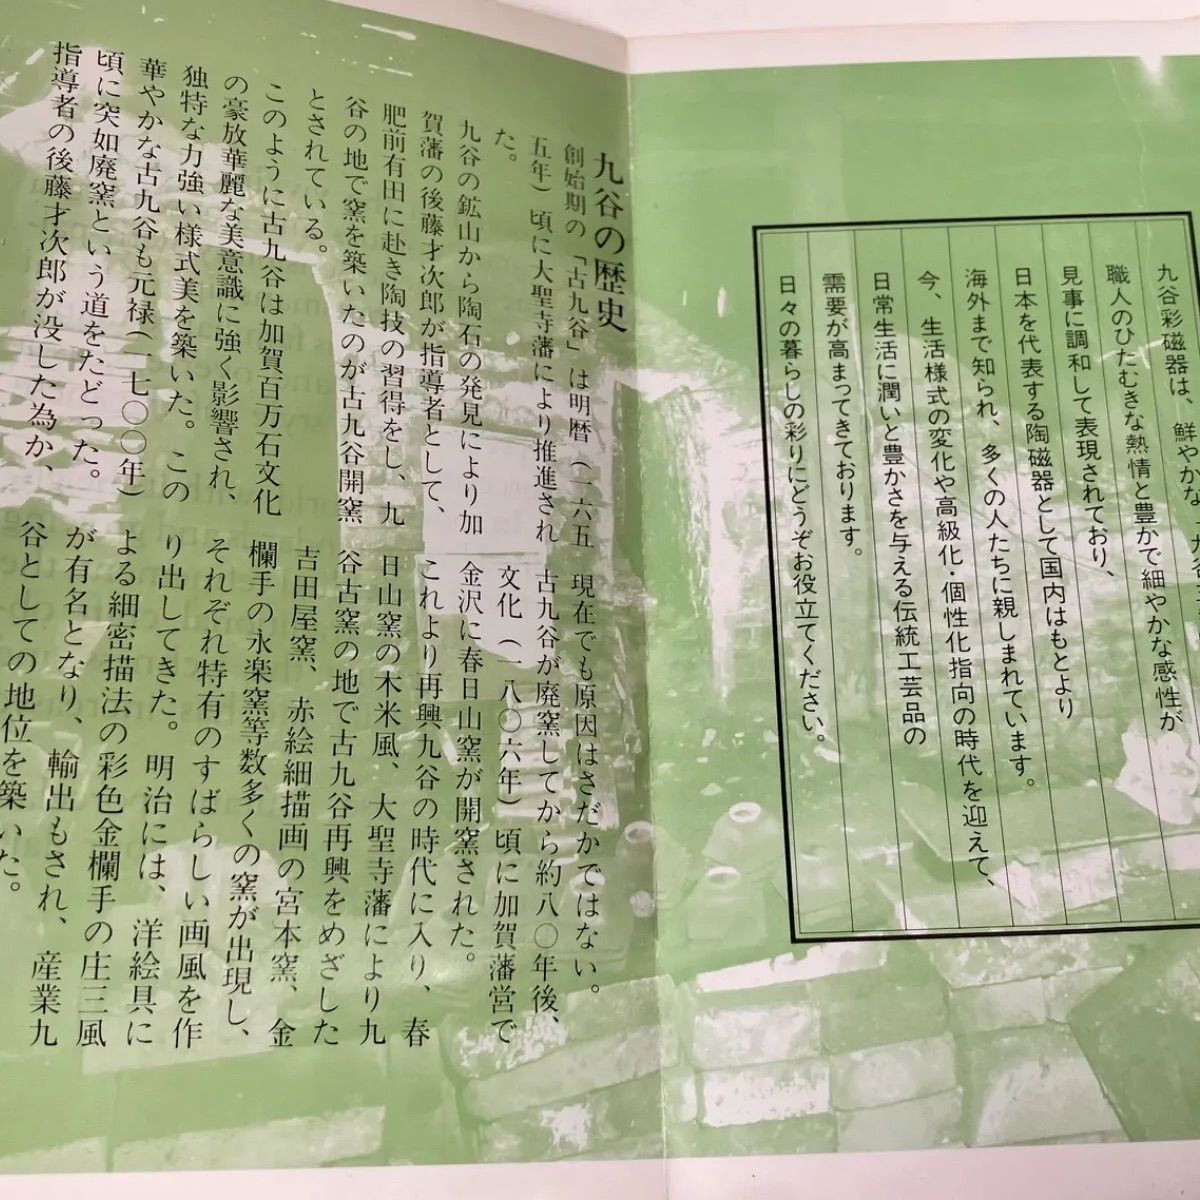 九谷彩磁器は、鮮やかな
職人のひたむきな熱情と豊かで細やかな感性が
見事に調和して表現されており、
日本を代表する陶磁器として国内はもとより
海外まで知られ、多くの人たちに親しまれています。
今、生活様式の変化や高級化・個性化指向の時代を迎えて、
日常生活に潤いと豊かさを与える伝統工芸品の
需要が高まってきております。
日々の暮らしの彩りにどうぞお役立てください。
九谷の歴史
創始期の「古九谷」は明暦(一六五
五年)頃に大聖寺藩により推進され
た。
九谷の鉱山から陶石の発見により加
賀藩の後藤才次郎が指導者として、
肥前有田に赴き陶技の習得をし、九
谷の地で窯を築いたのが古九谷開窯
とされている。
このように古九谷は加賀百万石文化
の豪放華麗な美意識に強く影響され、
独特な力強い様式美を築いた。この
華やかな古九谷も元禄(一七〇〇年)
頃に突如廃窯という道をたどった。
指導者の後藤才次郎が没した為か、
現在でも原因はさだかではない。
古九谷が廃窯してから約八〇年後、
文化(一八〇六年)頃に加賀藩営で
金沢に春日山窯が開窯された。
これより再興九谷の時代に入り、春
日山窯の木米風、大聖寺藩により九
谷古窯の地で古九谷再興をめざした
吉田屋窯、赤絵細描画の宮本窯、金
欄手の永楽窯等数多くの窯が出現し、
それぞれ特有のすばらしい画風を作
り出してきた。明治には、洋絵具に
よる細密描法の彩色金欄手の庄三風
が有名となり、輸出もされ、産業九
谷としての地位を築いた。